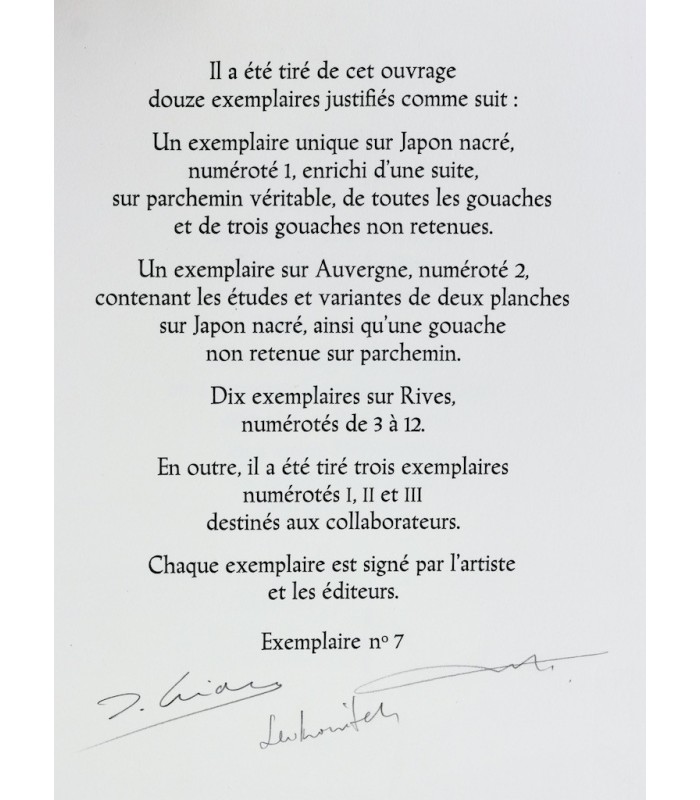 Il a été tiré de cet ouvrage
douze exemplaires justifiés comme suit :
Un exemplaire unique sur Japon nacré,
numéroté 1, enrichi d'une suite,
sur parchemin véritable, de toutes les gouaches
et de trois gouaches non retenues.
Un exemplaire sur Auvergne, numéroté 2,
contenant les études et variantes de deux planches
sur Japon nacré, ainsi qu'une gouache
non retenue sur parchemin.
Dix exemplaires sur Rives,
numérotés de 3 à 12.
En outre, il a été tiré trois exemplaires
numérotés I, II et III
destinés aux collaborateurs.
Chaque exemplaire est signé par l'artiste
et les éditeurs.
Exemplaire nº 7